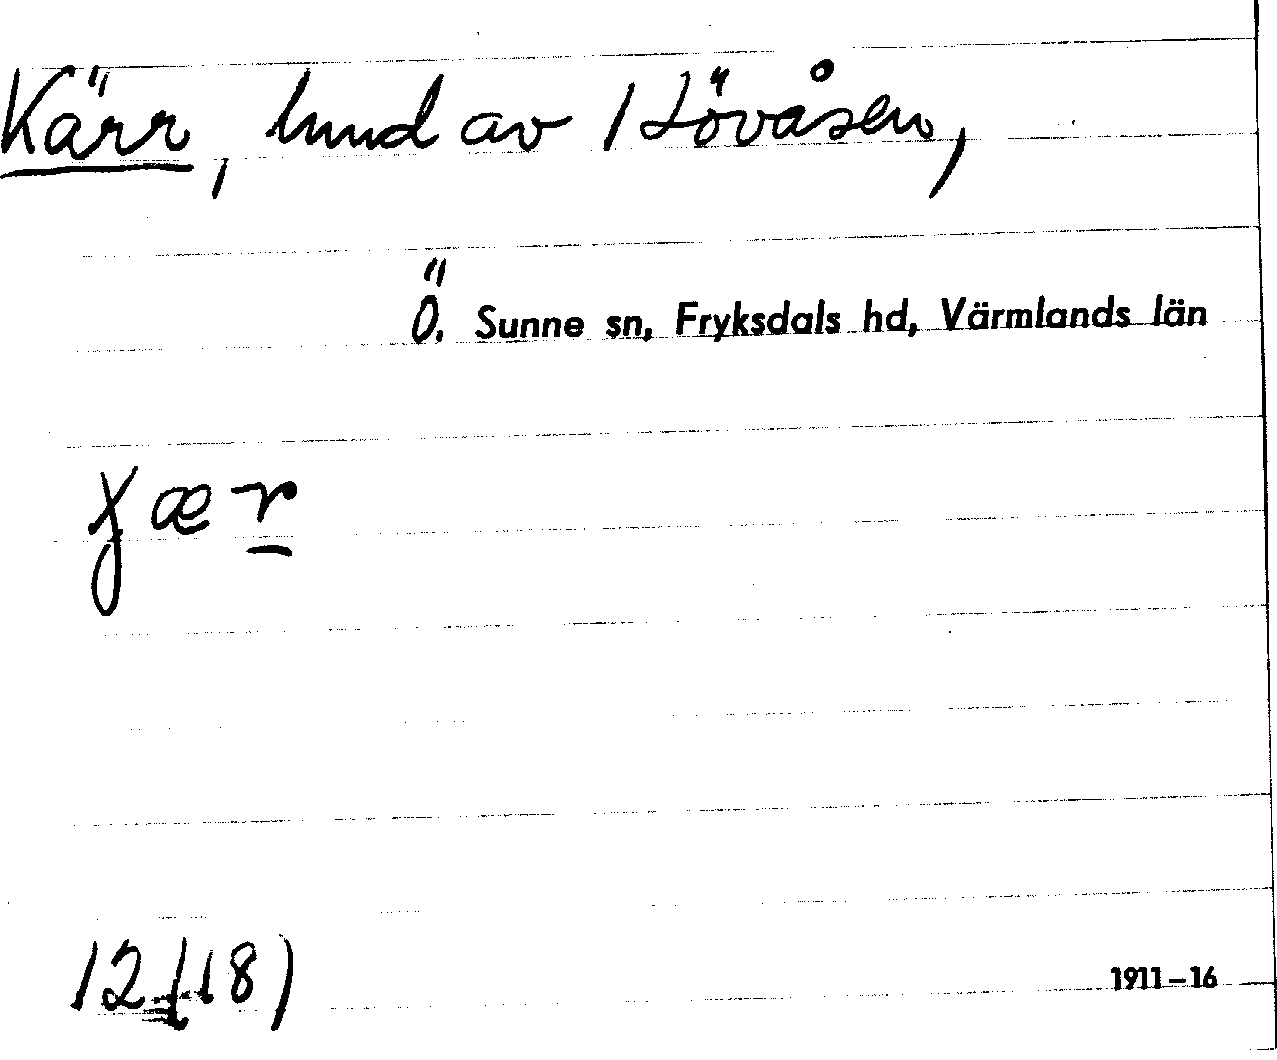 Kärr, lund av Hövåsen,
Ö. Sunne sn, Fryksdals hd, Värmlands län
12 (18)
1911–16